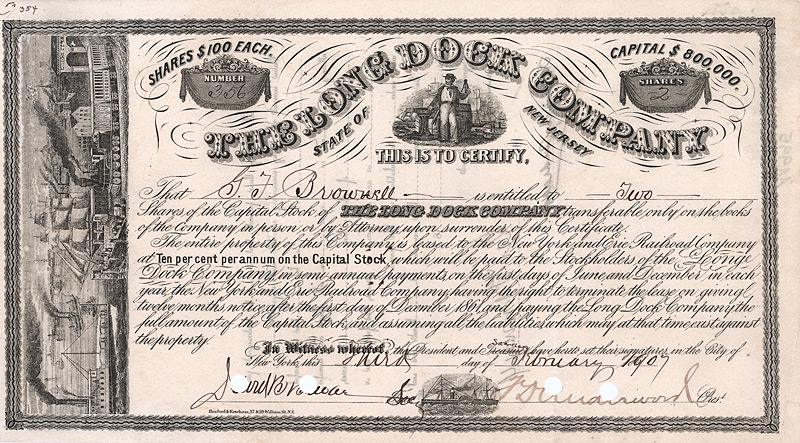 354
SHARES $100 EACH.
CAPITAL $800,000.
NUMBER
356
SHARES
2
THE LONG DOCK COMPANY
STATE OF NEW JERSEY
THIS IS TO CERTIFY,
That G F Brownell is entitled to Two
Shares of the Capital Stock of THE LONG DOCK COMPANY transferable only on the books
of the Company in person or by Attorney upon surrender of this Certificate.
The entire property of this Company is leased to the New York and Erie Railroad Company
at Ten per cent per annum on the Capital Stock, which will be paid to the Stockholders of the Long
Dock Company, in semi annual payments, on the first days of June and December in each
year, the New York and Erie Railroad Company, having the right to terminate the lease on giving
twelve months notice after the first day of December 1861, and paying the Long Dock Company, the
full amount of the Capital Stock, and assuming all the liabilities, which may at that time exist against
the property.
In Witness whereof, the President and Treasurer have hereto set their signatures, in the City of
New York this Third day of February 1907
Secy
Prest
Hosford & Ketcham, 57 & 59 William St. N.Y.